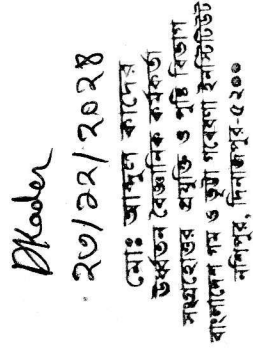 DKader
২৩/১২/২০২৪
মোঃ আব্দুল কাদের
উর্ধ্বতন বৈজ্ঞানিক কর্মকর্তা
সংগ্রহোত্তর প্রযুক্তি ও পুষ্টি বিভাগ
বাংলাদেশ গম ও ভুট্টা গবেষণা ইনস্টিটিউট
নশিপুর, দিনাজপুর-৫২০০